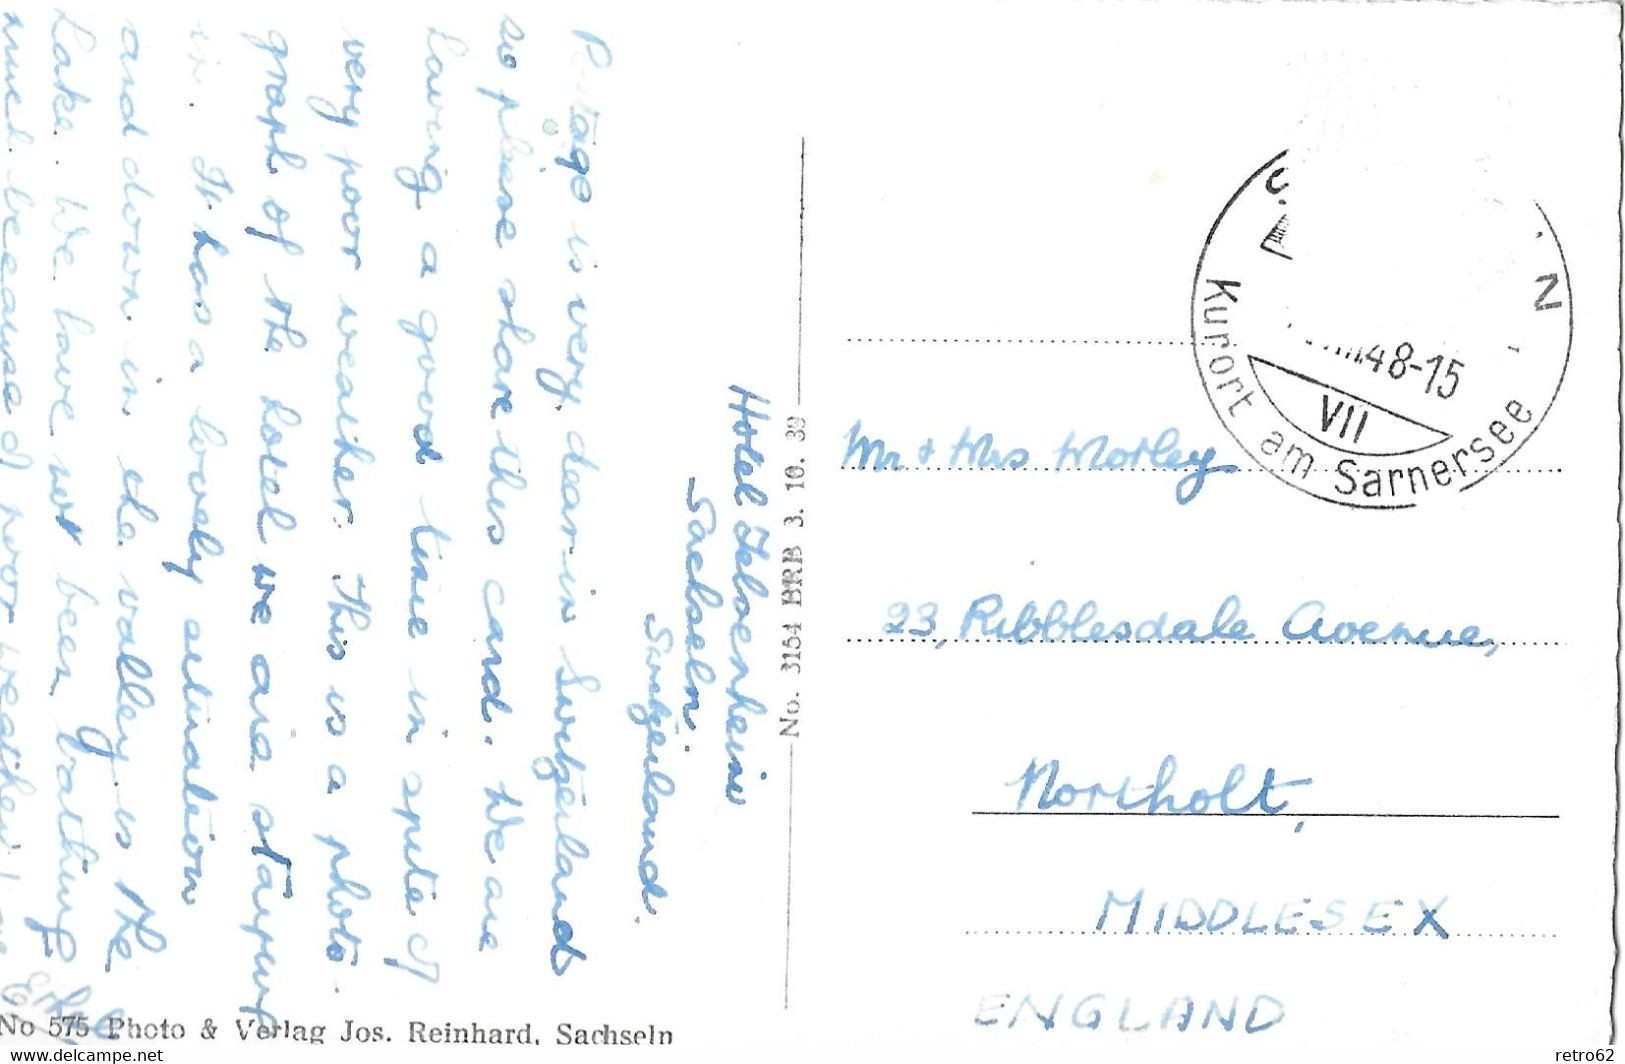 Hotel Felsenheim
Sachseln.
Switzerland.
Postage is very dear in Switzerland
so please share this card. We are
having a good time in spite of
very poor weather. This is a photo-
graph of the hotel we are staying
in. It has a lovely situation
and down in the valley is the
Lake. We have not been bathing
much because of poor weather.
Ethel
No. 3154 BRB 3. 10. 39
Kurort am Sarnersee
48-15
VII
Mr & Mrs Morley
23, Ribblesdale Avenue,
Northolt,
MIDDLESEX
ENGLAND
No 575 Photo & Verlag Jos. Reinhard, Sachseln
https://www.delcampe.net
retro62